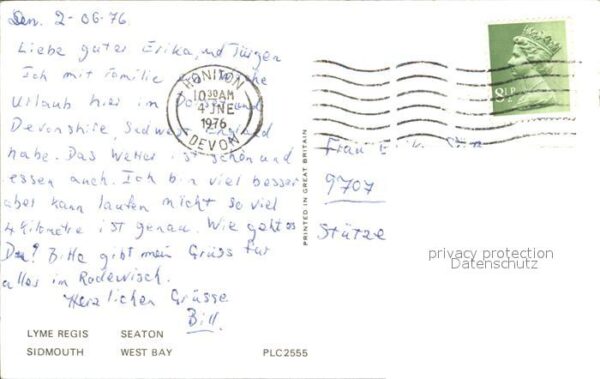 Den. 2-06.76
Liebe guter Erika und Jürgen
Ich mit Familie Woche
Urlaub hier im Dorset und
Devonshire, Sudwest England
habe. Das Wetter ist schön und
essen auch. Ich bin viel besser
aber kann laufen nicht so viel
4 kilometre ist genau. Wie geht es
Du? Bitte gibt mein Grüss für
alles in Rodewisch.
Herzlichen Grüsse
Bill.
HONITON
10 30 AM
4 JNE
1976
DEVON
8½P
PRINTED IN GREAT BRITAIN
Frau
9707
Stütze
privacy protection
Datenschutz
LYME REGIS SEATON
SIDMOUTH WEST BAY PLC2555